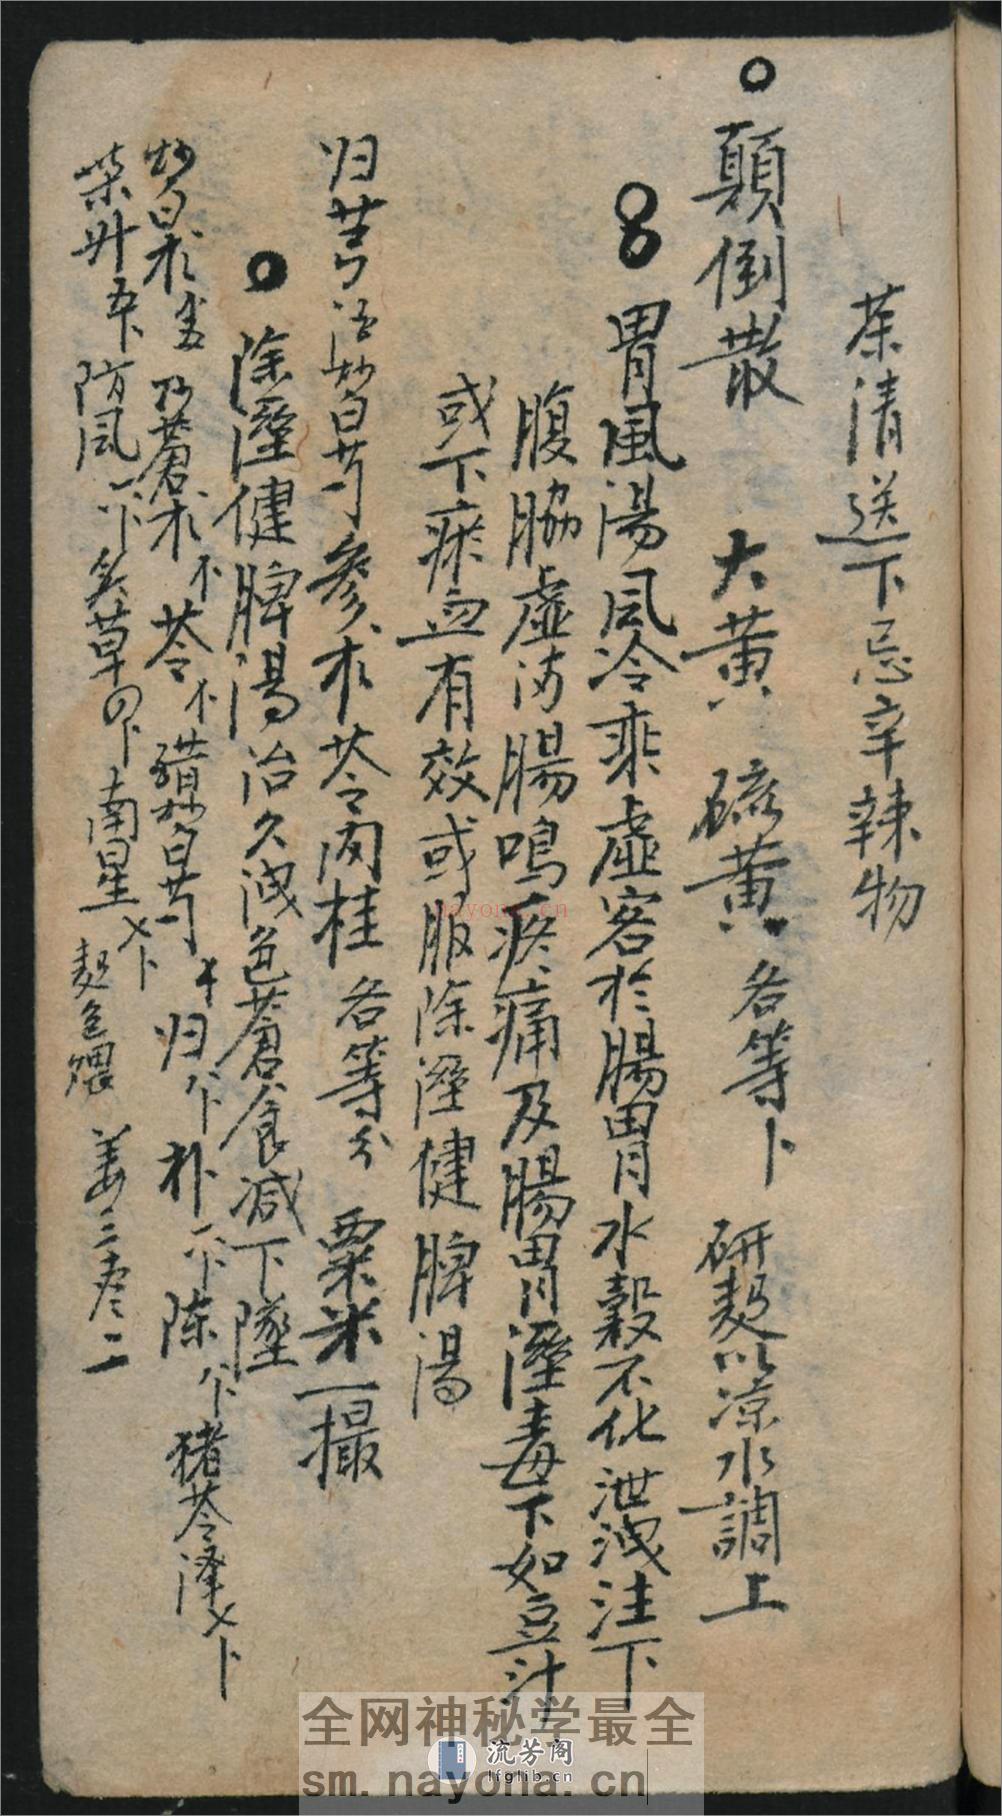 茶清送下忌辛辣物
顛倒散 大黃 硫黃 各等卜 研 以凉水調上
胃風湯風冷乘虛客於腸胃水穀不化泄洩注下
腹脇虛 腸鳴疼痛及腸胃溼毒下如豆汁
或下瘀血有效或服除溼健脾湯
归芎 炒白芍參朮苓肉桂 各等分 粟米一撮
除溼健脾湯治久洩色蒼食减下墜
炒白朮 炒蒼朮 苓 炒白芍 归 朴 陈 猪苓泽
柴升 防風 炙草 南星 姜三枣二
nayona.cn
全网神秘学最全
流芳阁
lfglib.cn
sm.nayona.cn